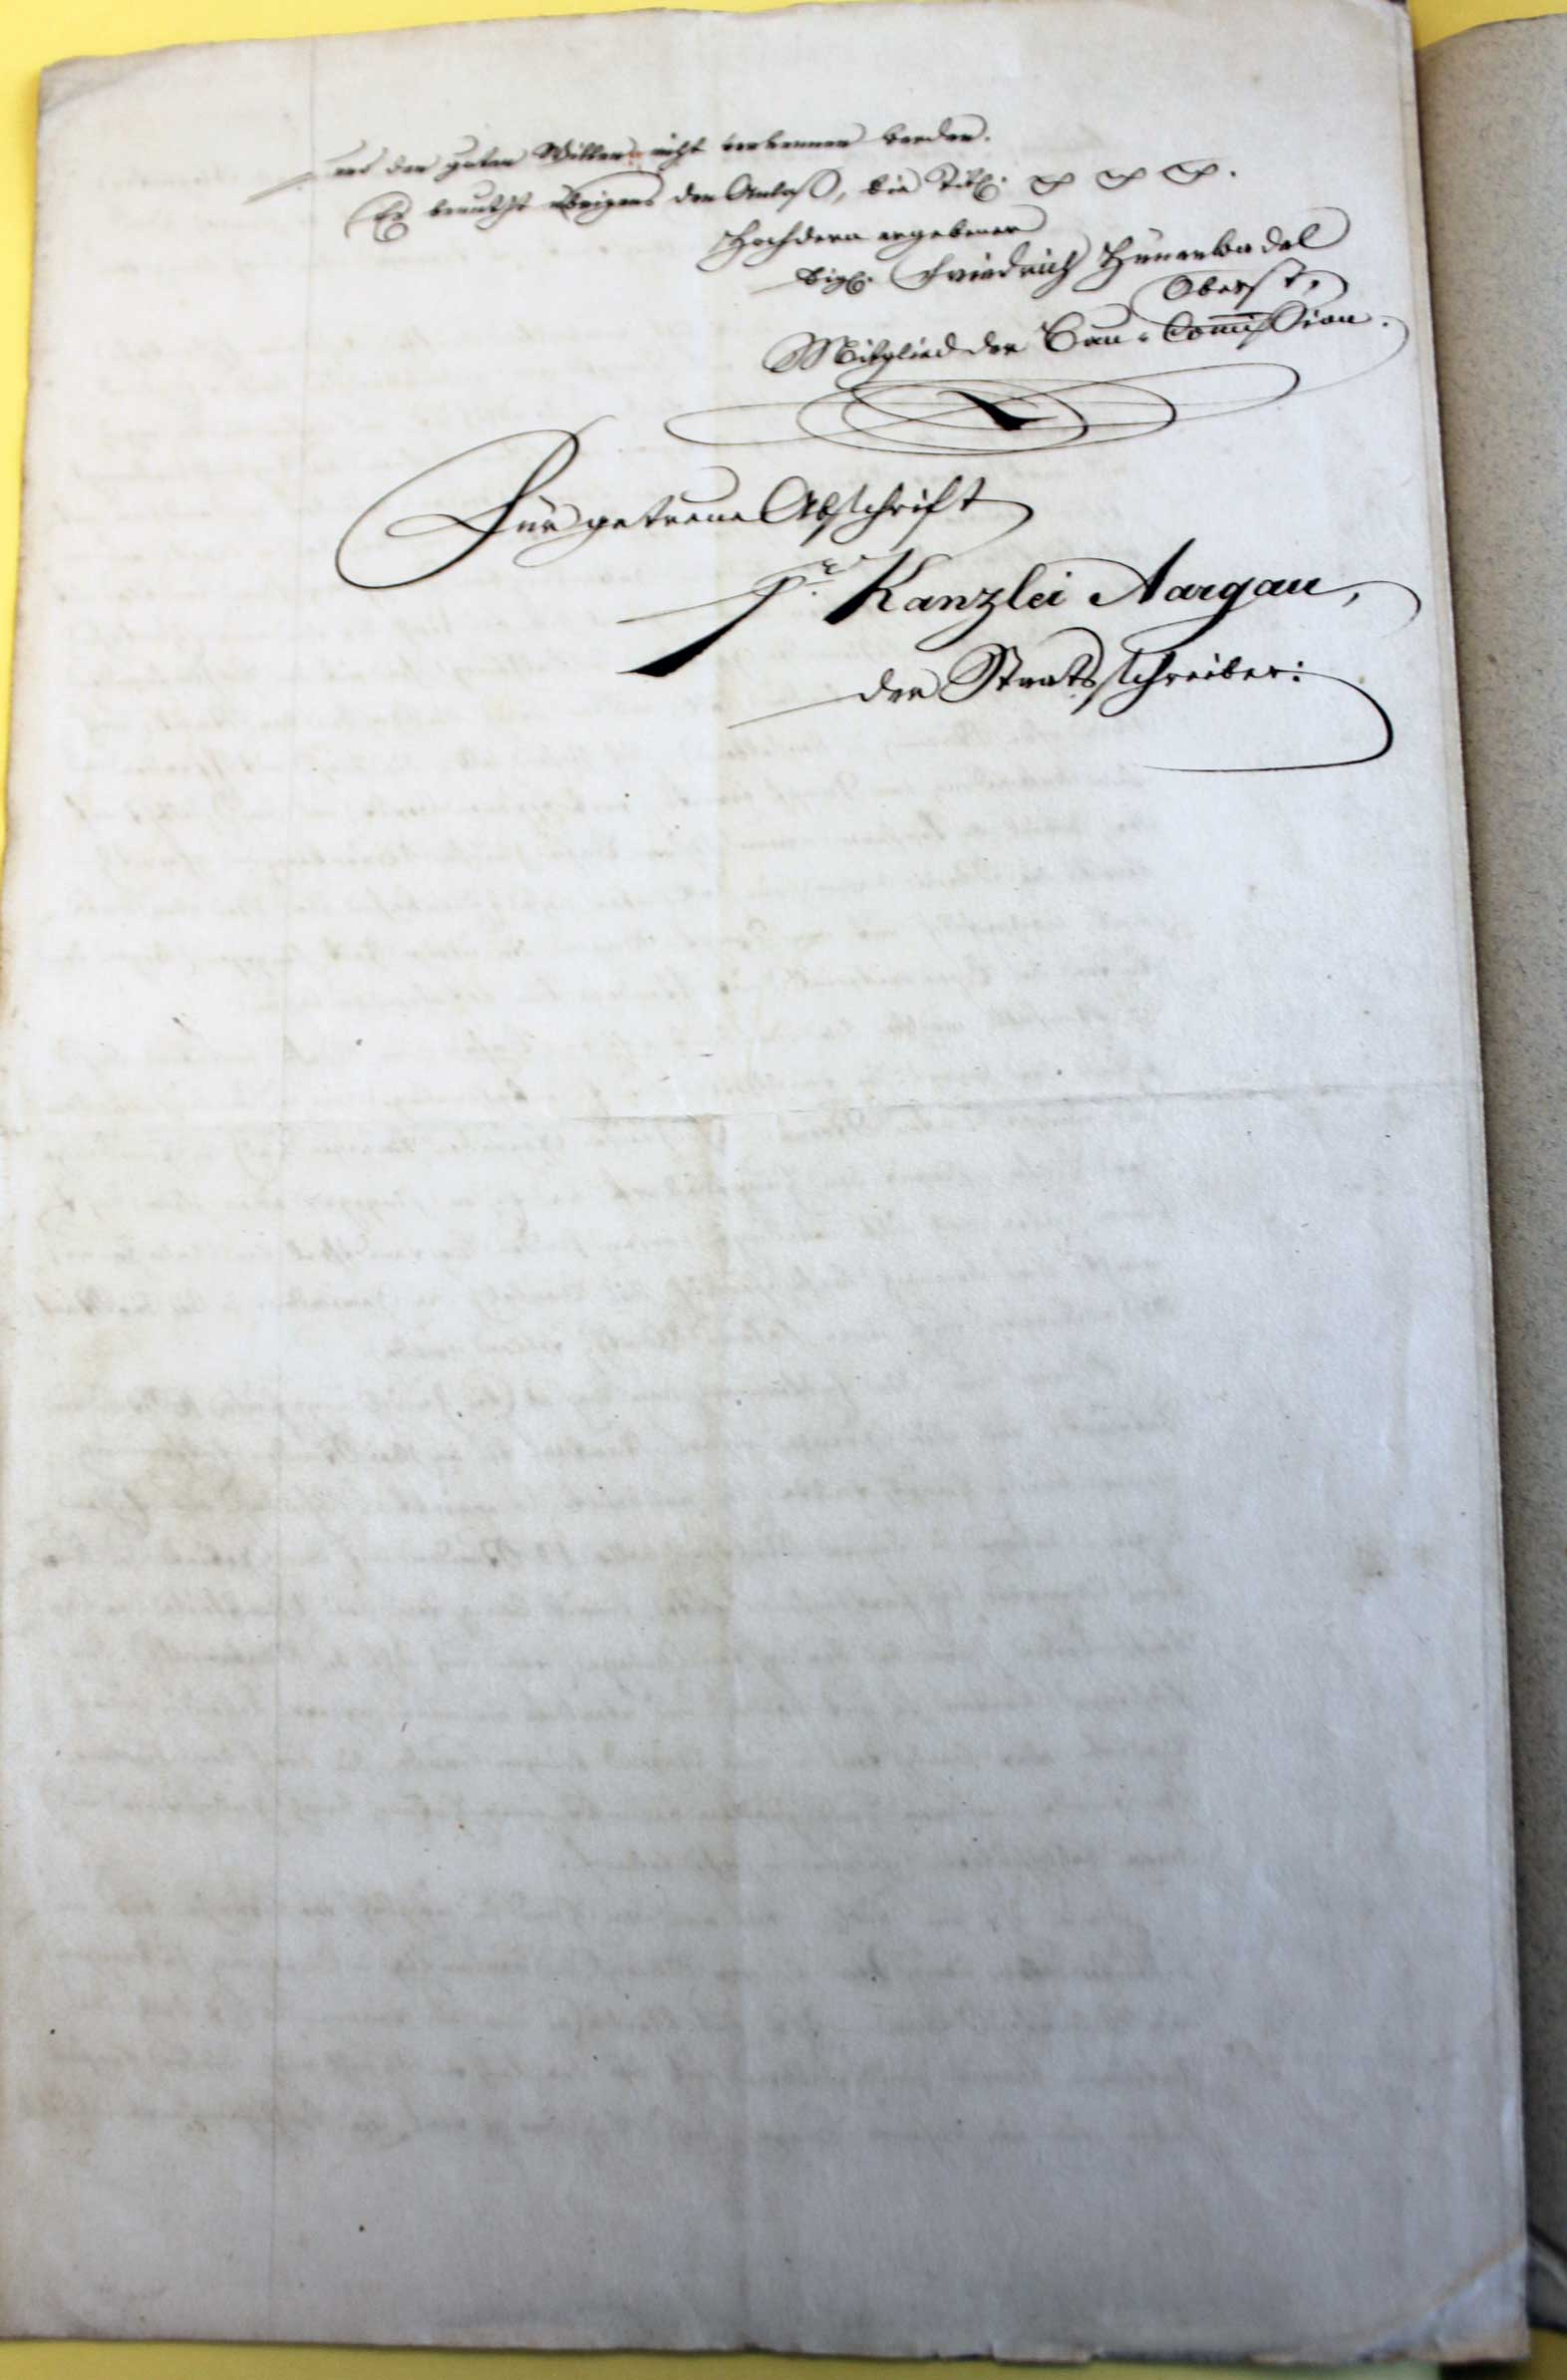 und den guten Willen nicht verkennen werden.
Er benutzt übrigens den Anlaß, die Titl.
Hochdero ergebener
sig. Friedrich Hünerwadel
Oberst,
Mitglied der Bau-Commission.
Für getreue Abschrift
Kanzlei Aargau,
der Staatsschreiber: